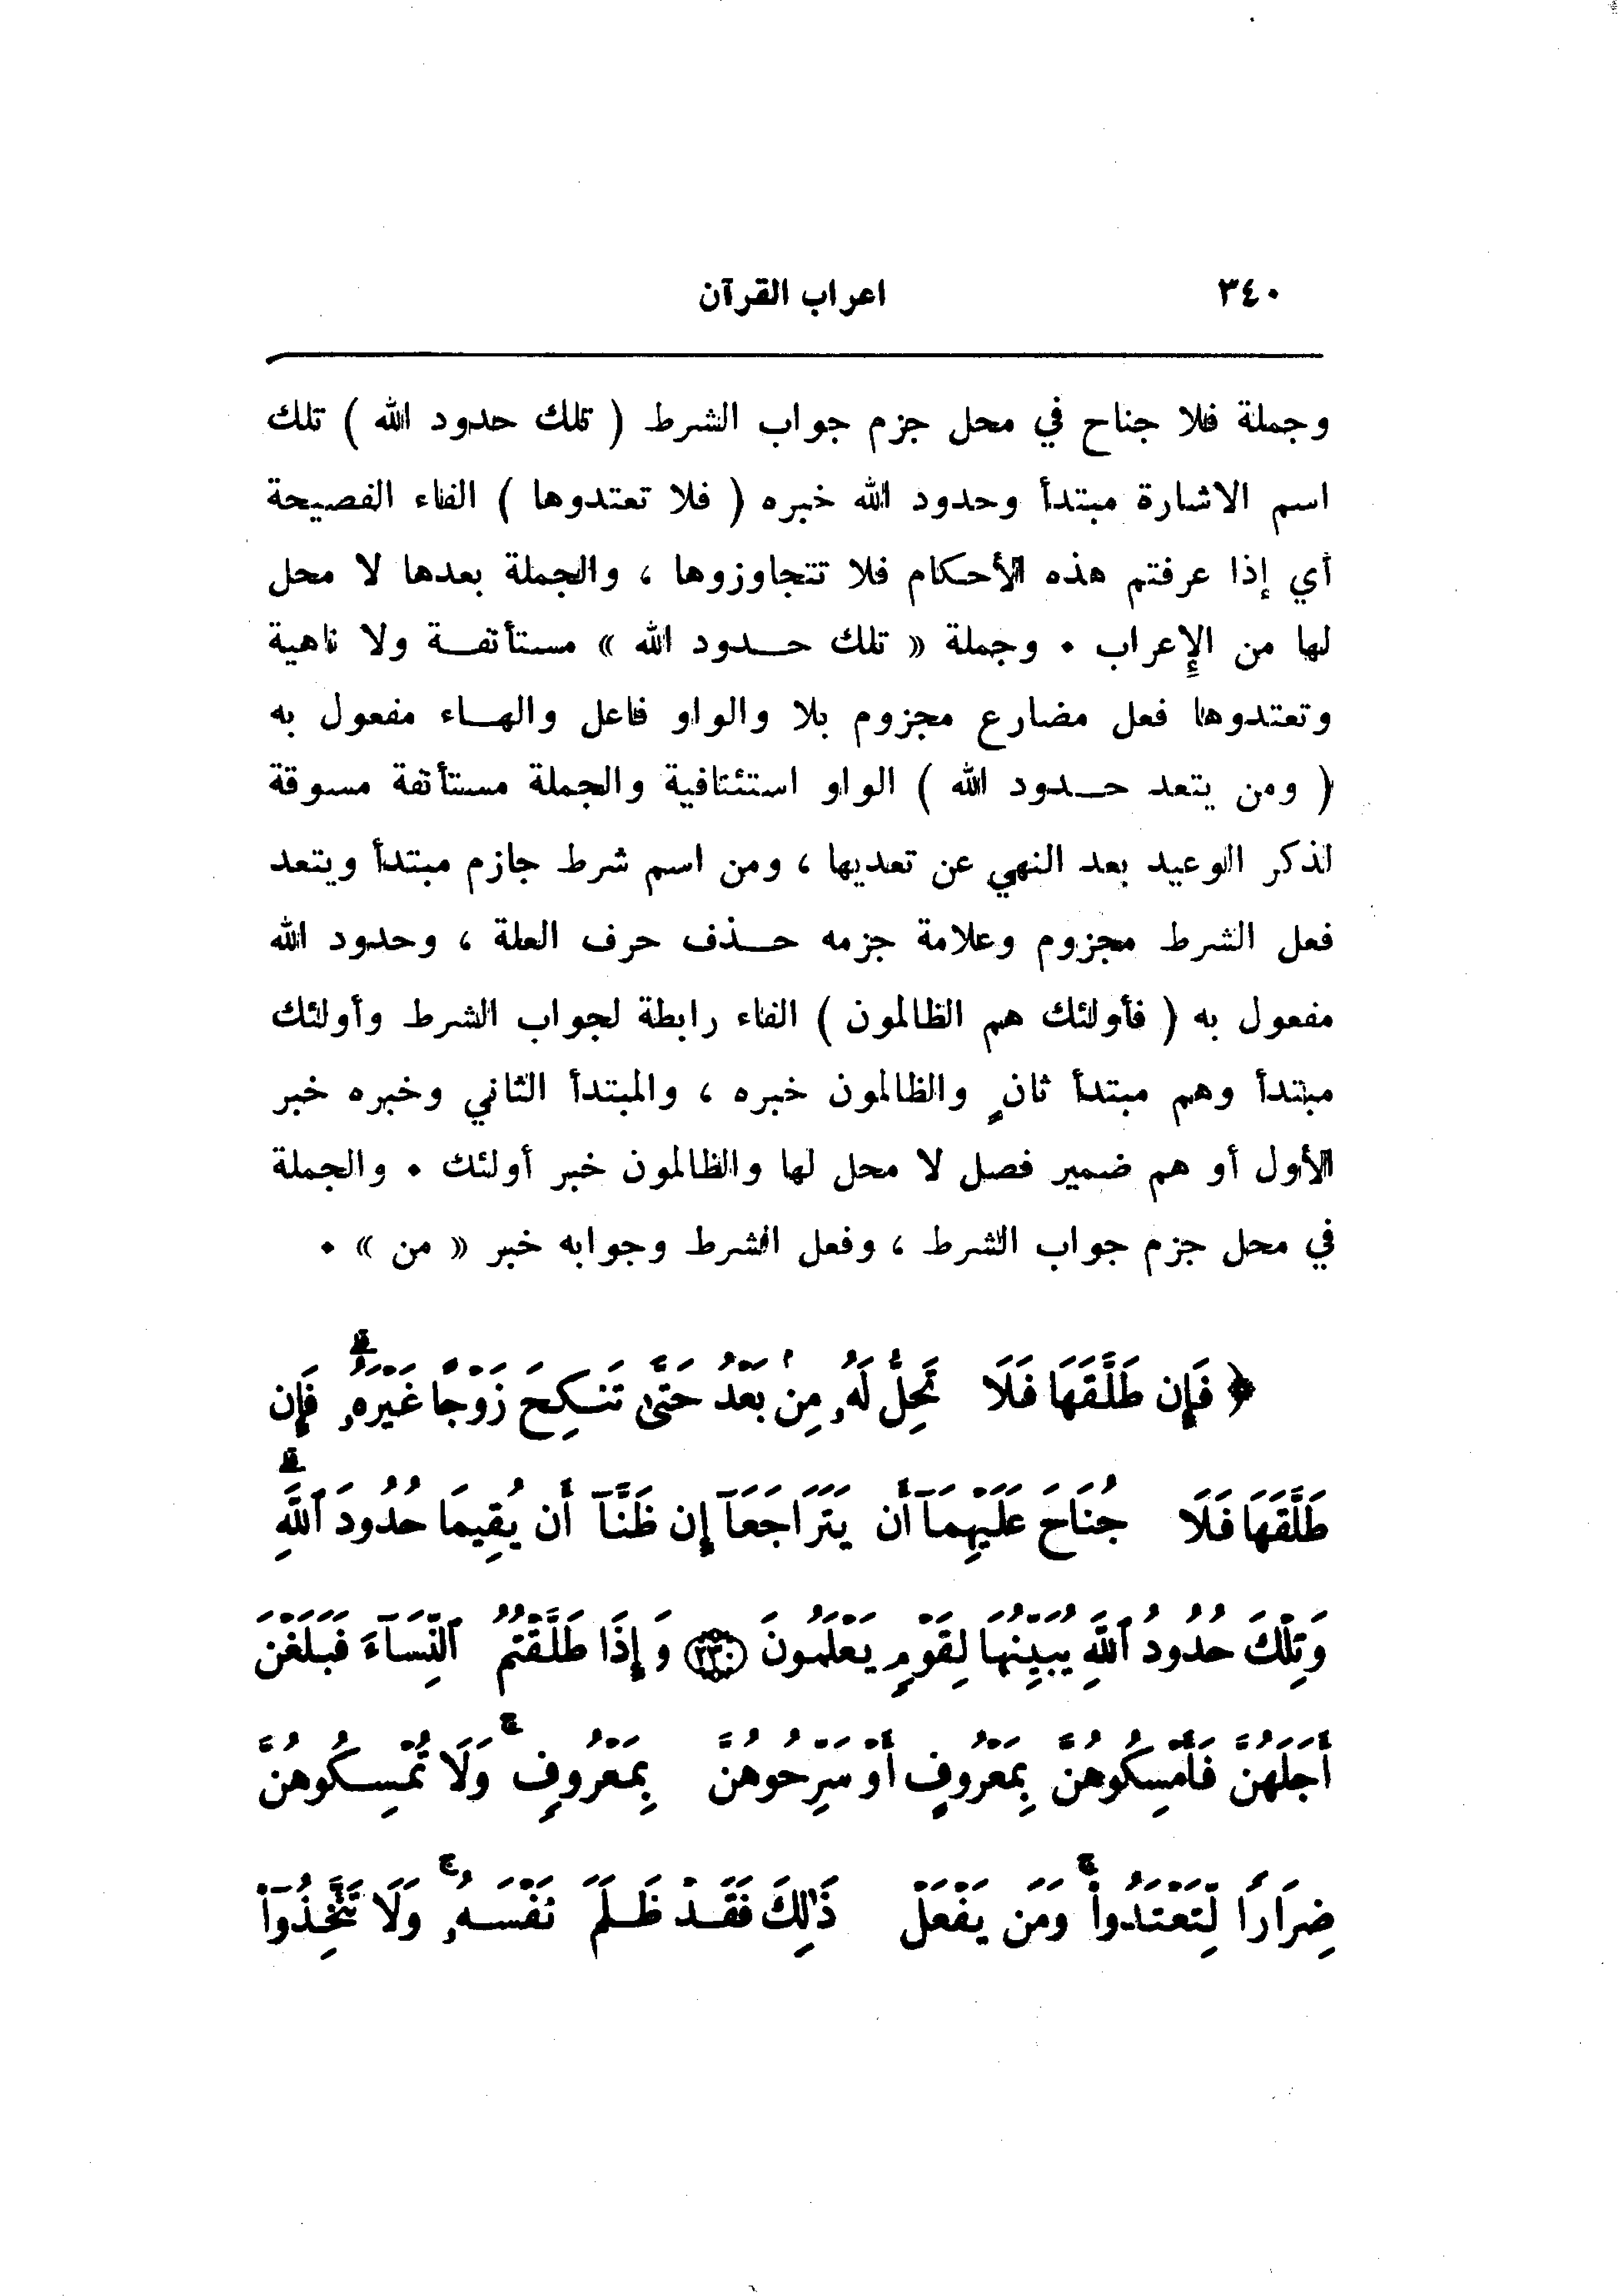 ٣٤٠ اعراب القرآن
وجملة فلا جناح في محل جزم جواب الشرط ( تلك حدود الله ) تلك
اسم الاشارة مبتدأ وحدود الله خبره ( فلا تعتدوها ) الفاء الفصيحة
أي إذا عرفتم هذه الأحكام فلا تتجاوزوها ، والجملة بعدها لا محل
لها من الإعراب . وجملة « تلك حدود الله » مستأنفة ولا ناهية
وتعتدوها فعل مضارع مجزوم بلا والواو فاعل والهاء مفعول به
( ومن يتعد حدود الله ) الواو استئنافية والجملة مستأنفة مسوقة
لذكر الوعيد بعد النهي عن تعديها ، ومن اسم شرط جازم مبتدأ ويتعد
فعل الشرط مجزوم وعلامة جزمه حذف حرف العلة ، وحدود الله
مفعول به ( فأولئك هم الظالمون ) الفاء رابطة لجواب الشرط وأولئك
مبتدأ وهم مبتدأ ثانٍ والظالمون خبره ، والمبتدأ الثاني وخبره خبر
الأول أو هم ضمير فصل لا محل لها والظالمون خبر أولئك . والجملة
في محل جزم جواب الشرط ، وفعل الشرط وجوابه خبر « من » .
﴿ فَإِن طَلَّقَهَا فَلَا تَحِلُّ لَهُۥ مِنۢ بَعْدُ حَتَّىٰ تَنكِحَ زَوْجًا غَيْرَهُۥ ۗ فَإِن
طَلَّقَهَا فَلَا جُنَاحَ عَلَيْهِمَآ أَن يَتَرَاجَعَآ إِن ظَنَّآ أَن يُقِيمَا حُدُودَ ٱللَّهِ ۗ
وَتِلْكَ حُدُودُ ٱللَّهِ يُبَيِّنُهَا لِقَوْمٍ يَعْلَمُونَ ﴿٢٣٠﴾ وَإِذَا طَلَّقْتُمُ ٱلنِّسَآءَ فَبَلَغْنَ
أَجَلَهُنَّ فَأَمْسِكُوهُنَّ بِمَعْرُوفٍ أَوْ سَرِّحُوهُنَّ بِمَعْرُوفٍ ۚ وَلَا تُمْسِكُوهُنَّ
ضِرَارًا لِّتَعْتَدُوا۟ ۚ وَمَن يَفْعَلْ ذَٰلِكَ فَقَدْ ظَلَمَ نَفْسَهُۥ ۚ وَلَا تَتَّخِذُوٓا۟